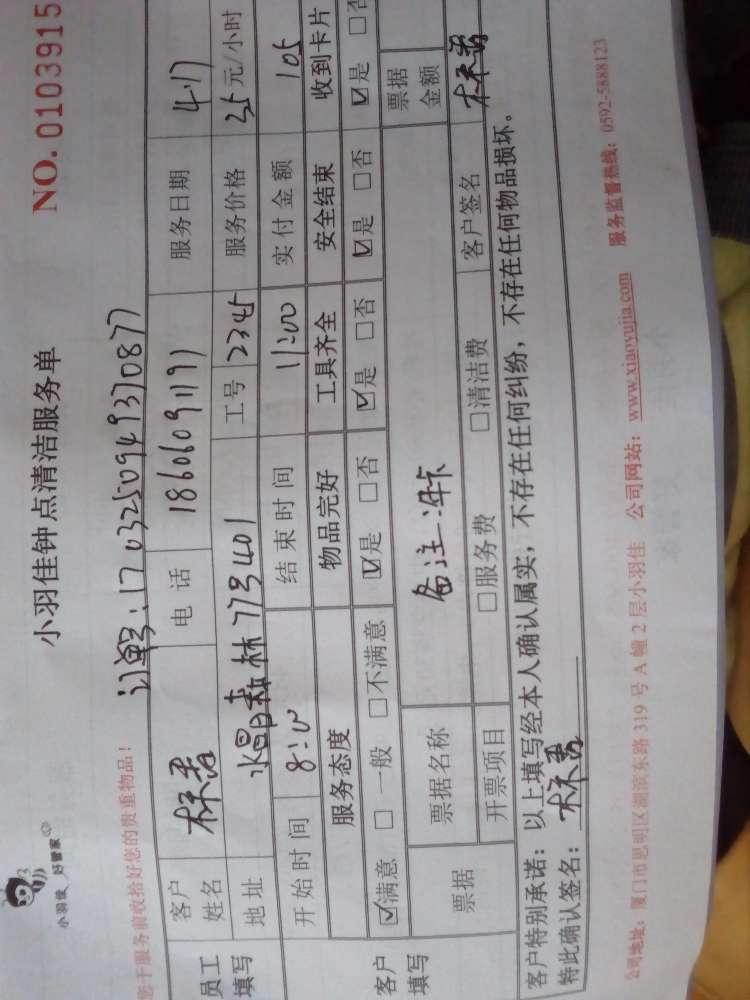 小羽佳 好管家
小羽佳钟点清洁服务单
NO. 0103915
您于服务前收拾好您的贵重物品!
订单号:1703250949370877
员工填写
客户姓名 林香 电话 18606091191 服务日期 4.17
地址 水晶森林773401 工号 2345 服务价格 35元/小时
客户填写
开始时间 8:00 结束时间 11:00 实付金额 105
服务态度 物品完好 工具齐全 安全结束 收到卡片
☑满意 □一般 □不满意 ☑是 □否 ☑是 □否 ☑是 □否 ☑是 □否
票据 票据名称 备注:年卡 票据金额
开票项目 □服务费 □清洁费 客户签名 林香
客户特别承诺:以上填写经本人确认属实,不存在任何纠纷,不存在任何物品损坏。
特此确认签名:林香
公司地址:厦门市思明区湖滨东路319号A幢2层小羽佳 公司网站:www.xiaoyujia.com 服务监督热线:0592-5888123